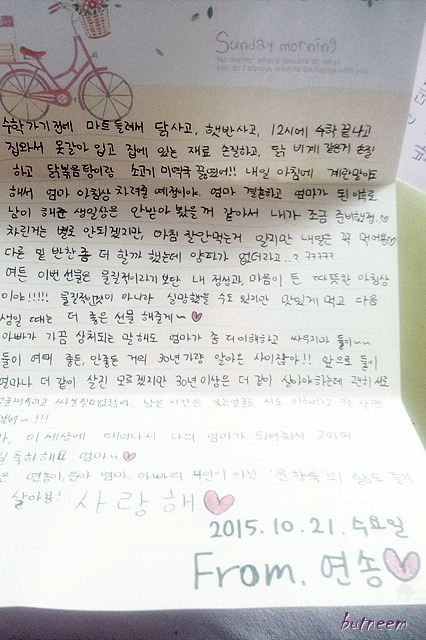 Sunday morning
No matter where you are or what
you do I always wish to be happy with you
수학가기전에 마트들려서 닭사고, 햇반사고, 12시에 수학 끝나고
집와서 옷갈아 입고 집에 있는 재료 손질하고, 닭 비계 같은거 손질
하고 닭볶음탕이랑 소고기 미역국 끓였어!! 내일 아침에 계란말이도
해서 엄마 아침상 차려줄 예정이야. 엄마 결혼하고 엄마가 된 이후로
남이 해준 생일상은 안받아 봤을거 같아서 내가 조금 준비했어♡
차린거는 별로 안되겠지만, 아침 잘안먹는거 알지만 내일은 꼭 먹어용♡
다른 밑반찬좀 더 할까 했는데 없더라고..?
여튼 이번 선물은 물질적이라기 보단 내 정성과, 마음이 든 따뜻한 아침상
이야!!!!! 물질적인것이 아니라 실망했을 수도 있지만 맛있게 먹고 다음
생일 때는 더 좋은 선물 해줄게~♡
아빠가 가끔 상처되는 말 해도 엄마가 좀 더 이해하고 싸우지마 둘이~~
둘이 여태 좋든, 안좋든 거의 30년가량 알아온 사이잖아!! 앞으로 둘이
얼마나 더 같이 살진 모르겠지만 30년이상은 더 같이 살아야하는데 괜히 서로
남은 시간은 서로 이해하고 잘 살면
~!!!
이 세상에 태어나서 나의 엄마가 되어줘서 고마워.
축하해요 엄마~♡
연송이,윤아 엄마, 아빠의 부인이 아닌 '윤향숙'의 삶도 즐기
살아용! 사랑해♡
2015.10.21.수요일
From. 연송♡
butreem